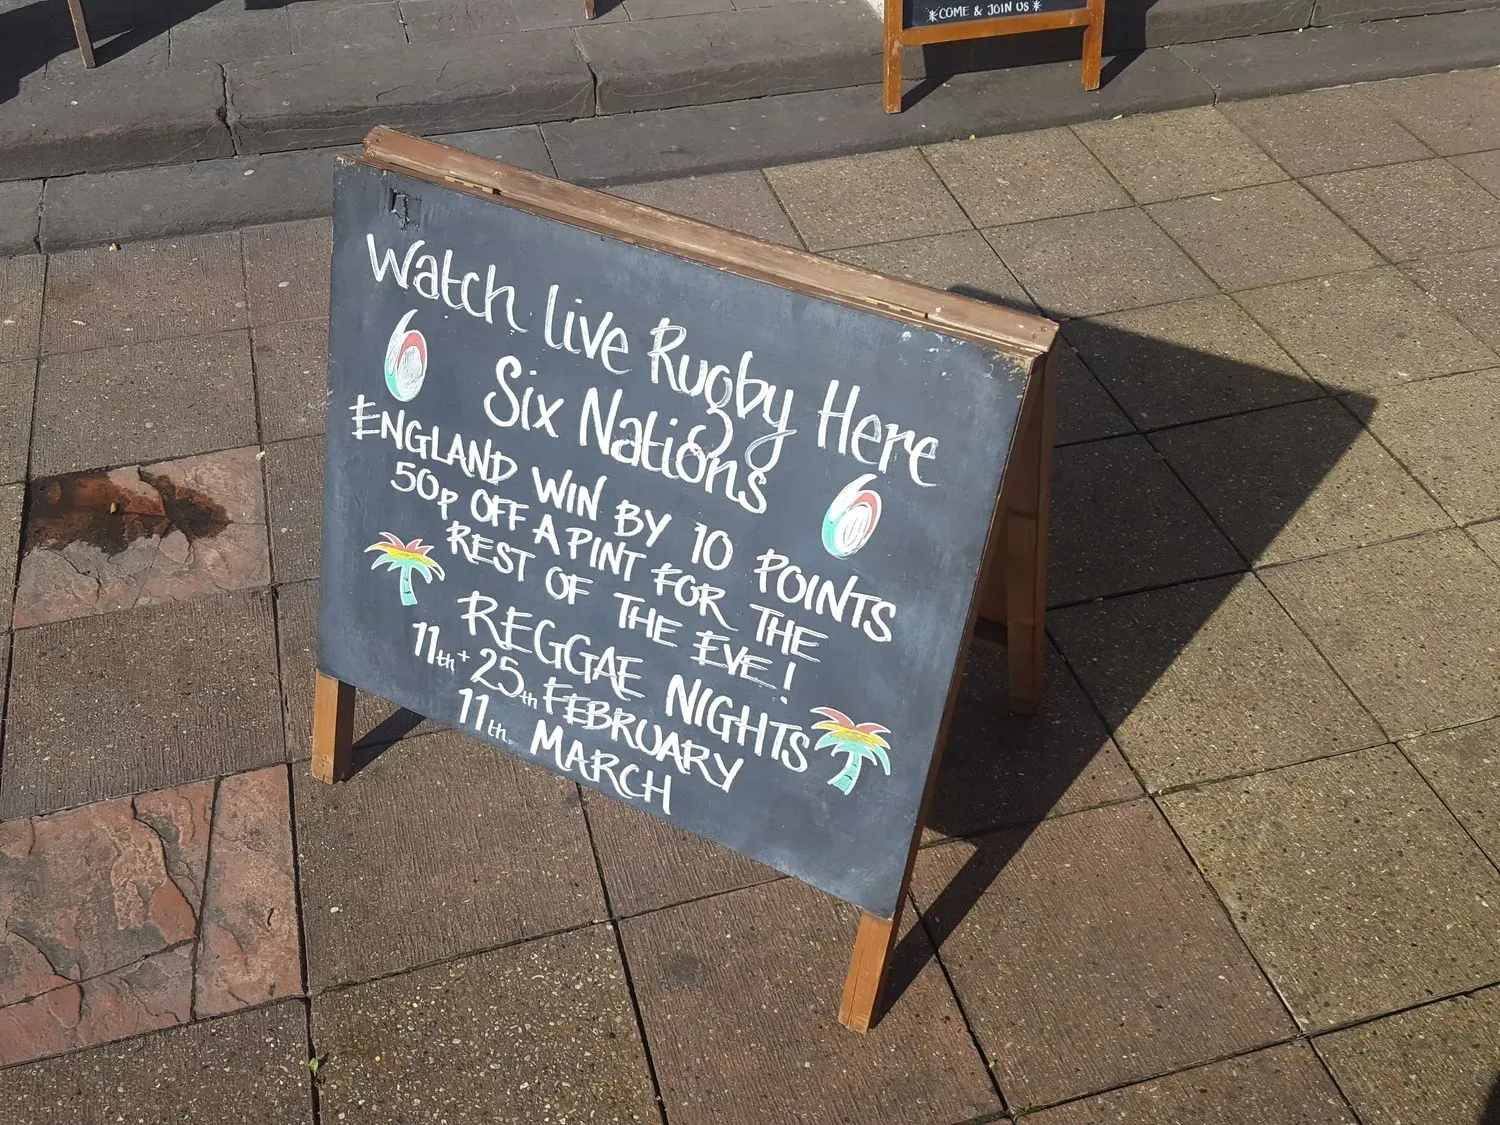 *COME & JOIN US*
Watch live Rugby Here
Six Nations
ENGLAND WIN BY 10 POINTS
50p OFF A PINT FOR THE
REST OF THE EVE!
REGGAE NIGHTS
11th + 25th FEBRUARY
11th MARCH